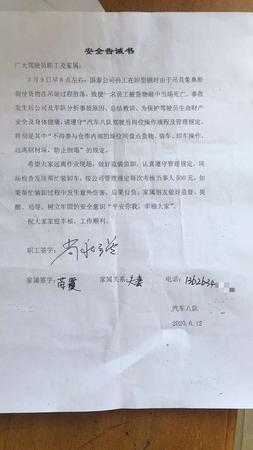 安全告诫书
广大驾驶员职工及家属：
3月9日早8点左右，国泰公司员工在卸型钢时由于吊具象鼻
致使货物在吊装过程散落，致使一名员工被货物砸中当场死亡。事故
发生后公司及车队分析事故原因、总结教训，为保护驾驶员生命财产
安全及身体健康，请遵守“汽车八队驾驶员岗位操作流程及管理规定，
特别是其中“不得参与仓库内部的垛位间查点货物、装车、卸车操作，
远离钢材垛，防止倒塌”的规定。
希望大家远离作业现场，做好监装监卸，认真遵守管理规定，现
场检查发现帮忙装卸车，按公司管理规定每次考核当事人500元。如
果帮忙装卸过程中发生意外伤害，后果自负。家属朋友做好监督、提
醒、劝导，树立牢固的安全意识“平安你我，幸福大家”。
祝大家家庭幸福、工作顺利。
职工签字：
家属签字： 家属关系：夫妻 电话：
汽车八队
2020.6.12